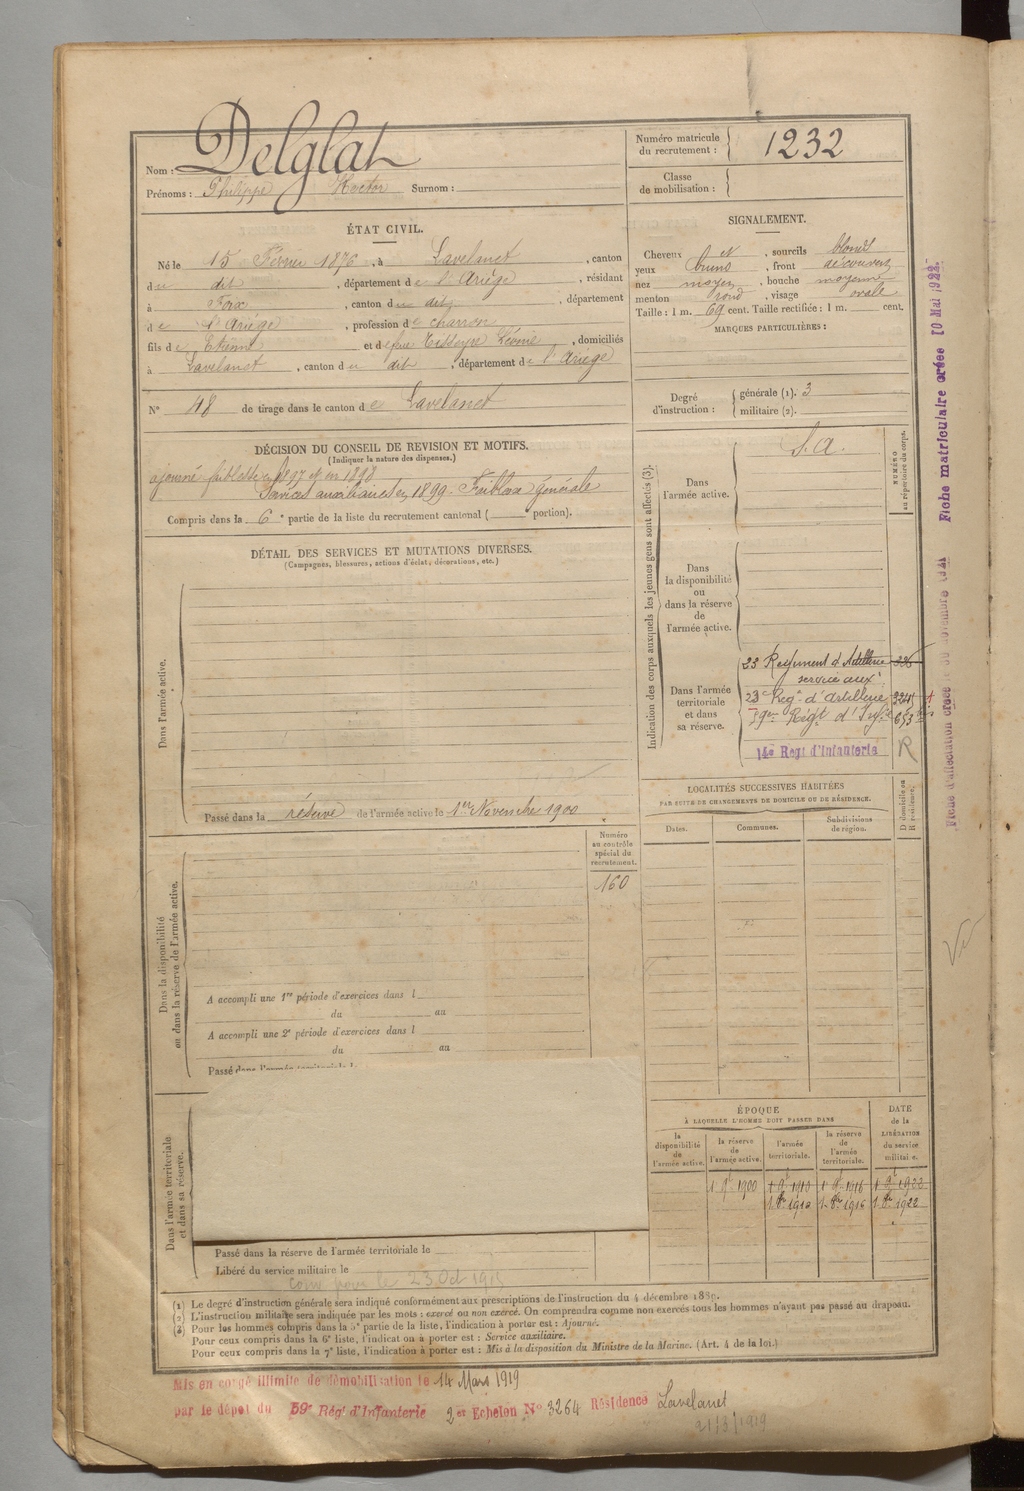 Nom : Delglat
Prénoms : Philippe Hector Surnom :
Numéro matricule du recrutement : 1232
Classe de mobilisation :
ÉTAT CIVIL.
Né le 15 Février 1876, à Lavelanet, canton
du dit, département de l'Ariège, résidant
à Foix, canton du dit, département
de l'Ariège, profession de charron
fils de Etienne et de feue Tisseyre Léonie, domiciliés
à Lavelanet, canton du dit, département de l'Ariège
N° 48 de tirage dans le canton de Lavelanet
SIGNALEMENT.
Cheveux et , sourcils blonds
yeux bruns, front découvert
nez moyen, bouche moyenne
menton rond, visage ovale
Taille : 1 m. 69 cent. Taille rectifiée : 1 m. cent.
MARQUES PARTICULIÈRES :
Degré d'instruction : générale (1). 3
militaire (2).
DÉCISION DU CONSEIL DE REVISION ET MOTIFS.
(Indiquer la nature des dispenses.)
ajourné faiblesse en 1897 et en 1898
Services auxiliaires en 1899. Faiblesse Générale
Compris dans la 6e partie de la liste du recrutement cantonal ( portion).
DÉTAIL DES SERVICES ET MUTATIONS DIVERSES.
(Campagnes, blessures, actions d'éclat, décorations, etc.)
Dans l'armée active.
Passé dans la réserve de l'armée active le 1er Novembre 1900
Indication des corps auxquels les jeunes gens sont affectés (3).
NUMÉRO au répertoire du corps.
Dans l'armée active.
S.A.
Dans la disponibilité ou dans la réserve de l'armée active.
Dans l'armée territoriale et dans sa réserve.
23 Regiment d'Artillerie 326
service aux.
23e Regt d'Artillerie
Régt d'Infie
14e Regt d'Infanterie R
LOCALITÉS SUCCESSIVES HABITÉES
PAR SUITE DE CHANGEMENTS DE DOMICILE OU DE RÉSIDENCE.
D domicile ou R résidence.
Dates. Communes. Subdivisions de région.
Numéro au contrôle spécial du recrutement.
160
Dans la disponibilité ou dans la réserve de l'armée active.
A accompli une 1re période d'exercices dans l
du au
A accompli une 2e période d'exercices dans l
du au
Passé dans l'armée territoriale l
Dans l'armée territoriale et dans sa réserve.
ÉPOQUE
À LAQUELLE L'HOMME DOIT PASSER DANS
DATE de la LIBÉRATION du service militaire.
la disponibilité de l'armée active. la réserve de l'armée active. l'armée territoriale. la réserve de l'armée territoriale.
1 9t 1900 1 9t 1910 1 9t 1916 1 9t 1922
1 8bre 1910 1 8bre 1916 1 8bre 1922
Passé dans la réserve de l'armée territoriale le
Libéré du service militaire le
(1) Le degré d'instruction générale sera indiqué conformément aux prescriptions de l'instruction du 4 décembre 1889.
(2) L'instruction militaire sera indiquée par les mots : exercé ou non exercé. On comprendra comme non exercés tous les hommes n'ayant pas passé au drapeau.
(3) Pour les hommes compris dans la 5e partie de la liste, l'indication à porter est : Ajourné.
Pour ceux compris dans la 6e liste, l'indication à porter est : Service auxiliaire.
Pour ceux compris dans la 7e liste, l'indication à porter est : Mis à la disposition du Ministre de la Marine. (Art. 4 de la loi.)
Mis en congé illimité de démobilisation le 14 Mars 1919
par le dépôt du 59e Régt d'Infanterie 2er Echelon N° 3264 Résidence Lavelanet
21/3/1919
Fiche matriculaire créée 10 Mai 1922
Fiche d'affectation créée